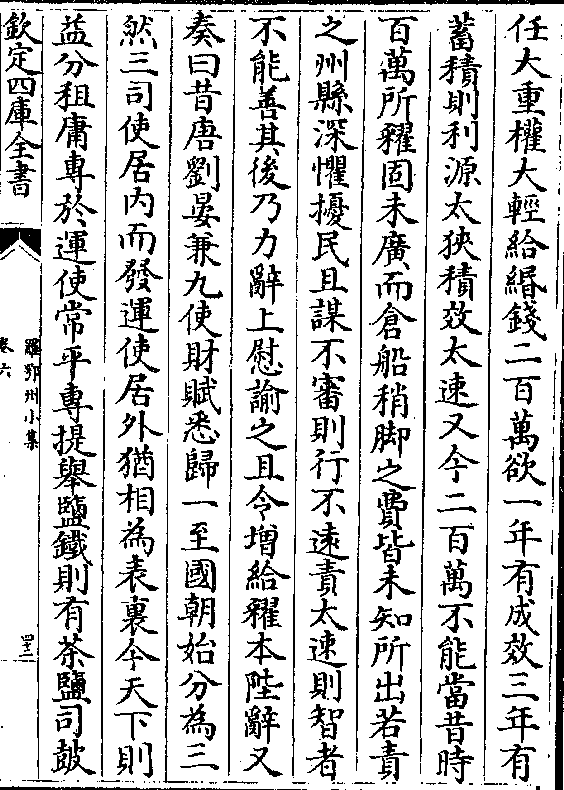 任大重權大輕給緡錢二百萬欲一年有成效三年有
蓄積則利源太狹積效太速又今二百萬不能當昔時
百萬所糴固未廣而倉船稍脚之費皆未知所出若責
之州縣深懼擾民且謀不審則行不逺責太速則智者
不能善其後乃力辭上慰諭之且令增給糴本陛辭又
奏曰昔唐劉晏兼九使財賦悉歸一至國朝始分為三
然三司使居内而發運使居外猶相為表裏今天下則
益分租庸專於運使常平專提舉鹽鐵則有茶鹽司鼓
欽定四庫全書
羅鄂州小集
卷六